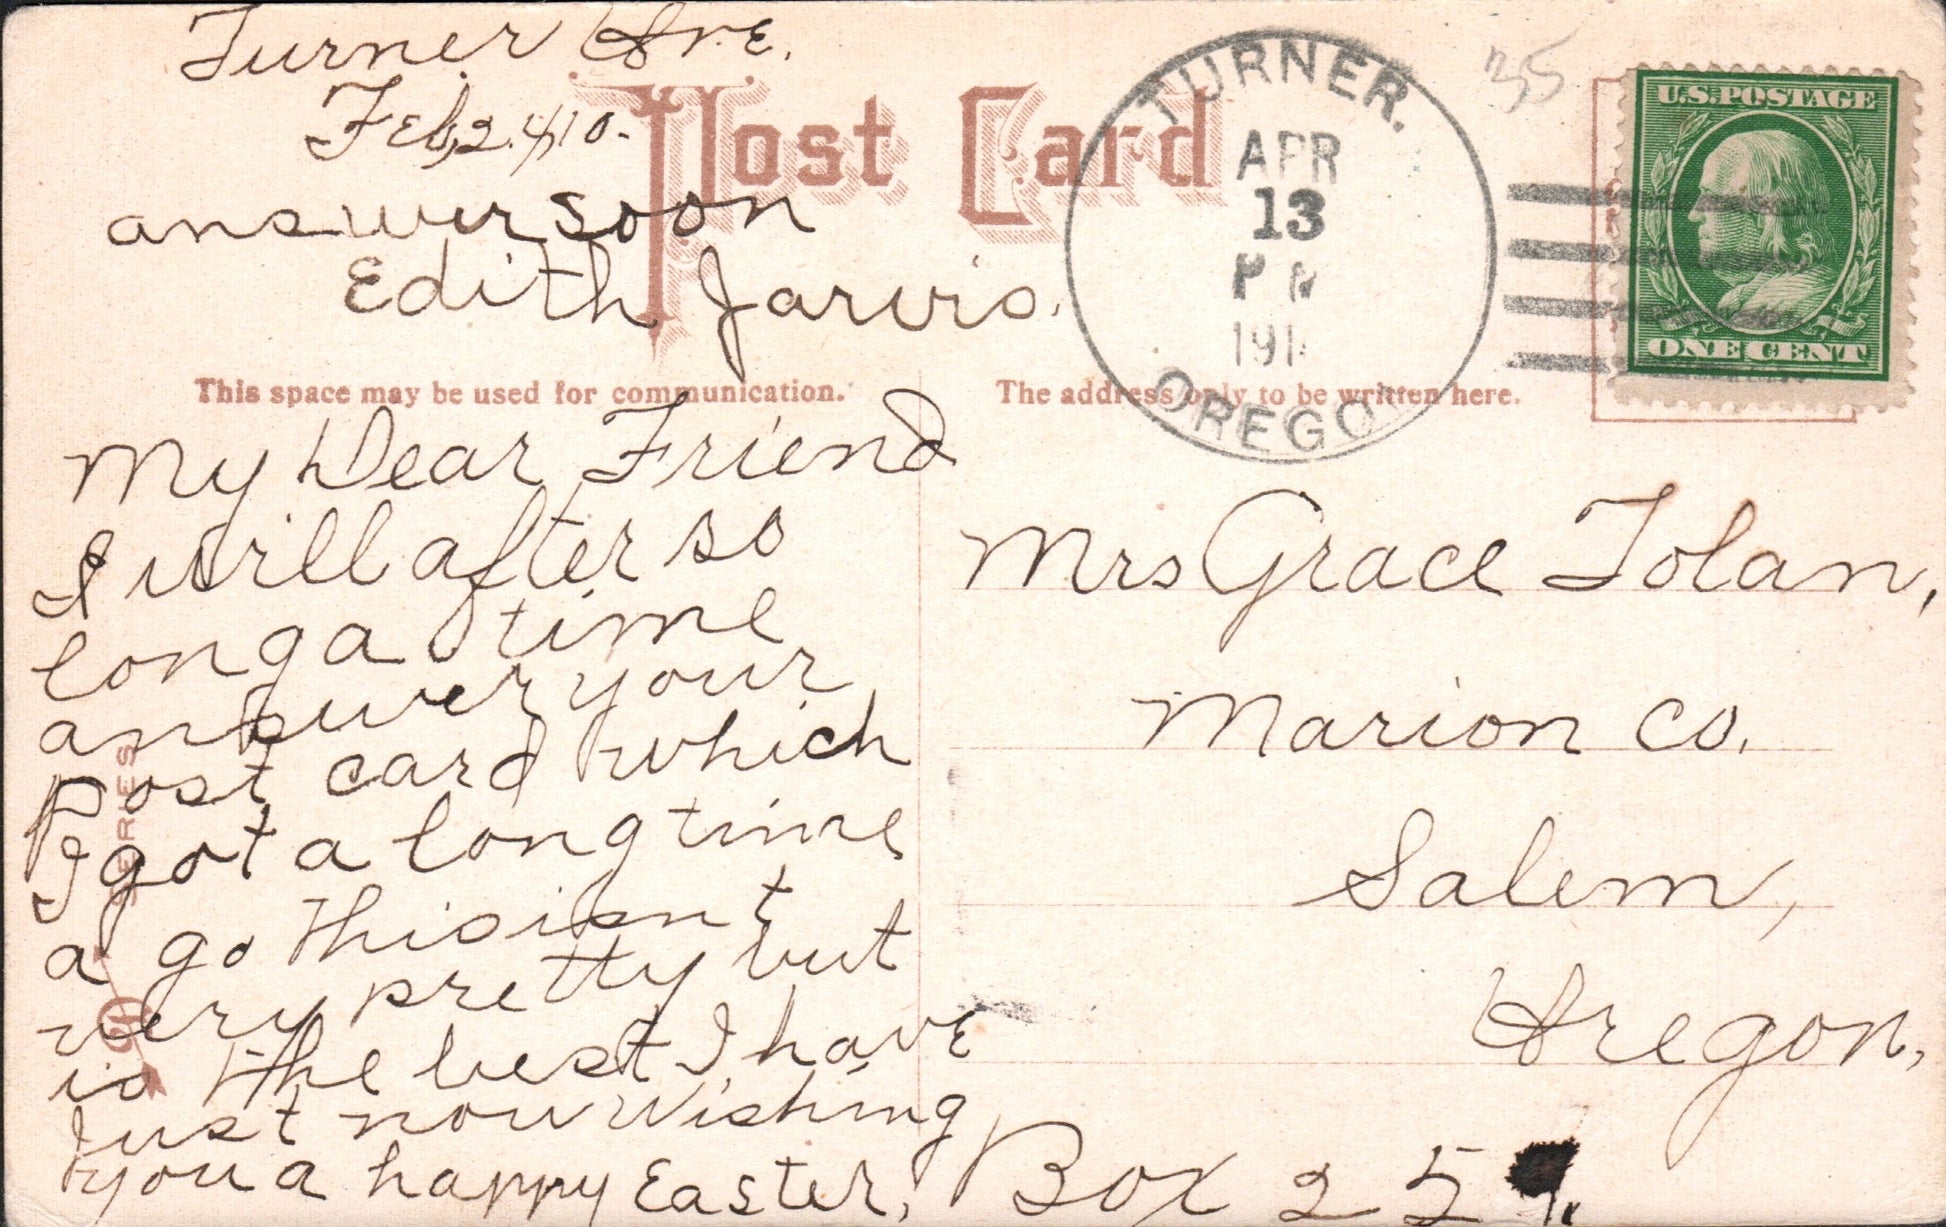 Turner Ore.
Feb, 24/10.
answer soon
Edith Jarvis.
Post Card
TURNER.
APR
13
PM
191
OREGO
35
U.S. POSTAGE
ONE CENT
This space may be used for communication.
The address only to be written here.
My Dear Friend
I will after so
long a time
answer your
post card which
I got a long time
a go this isnt
very pretty but
is the best I have
Just now wishing
you a happy Easter,
SERIES
Mrs Grace Tolan,
Marion Co.
Salem,
Oregon,
Box 25